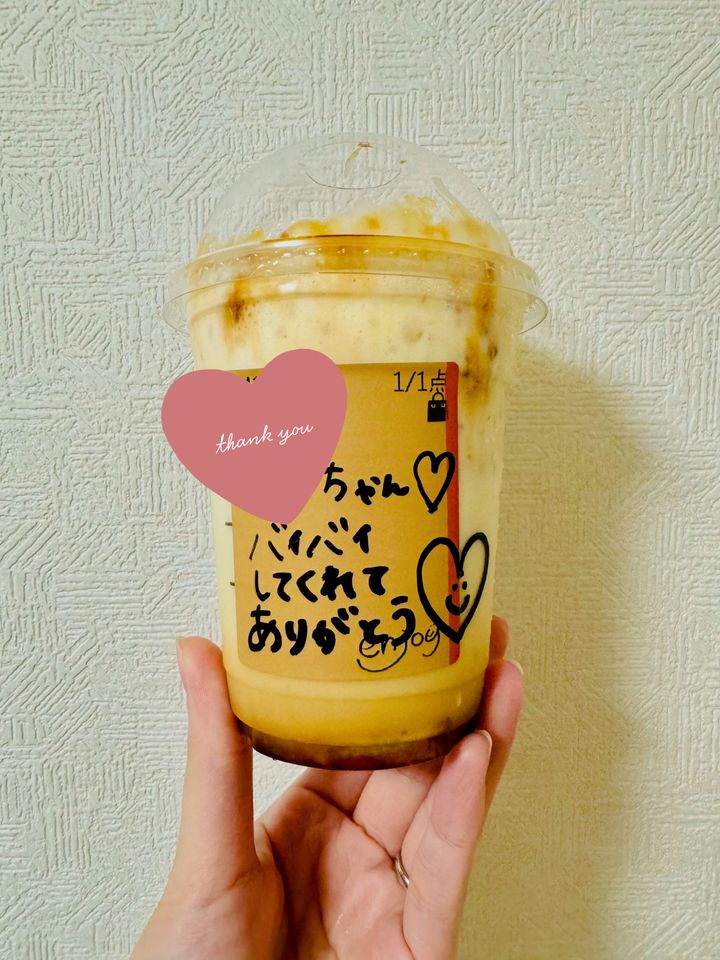 1/1点
thank you
ちゃん
バイバイ
してくれて
ありがとう
enjoy